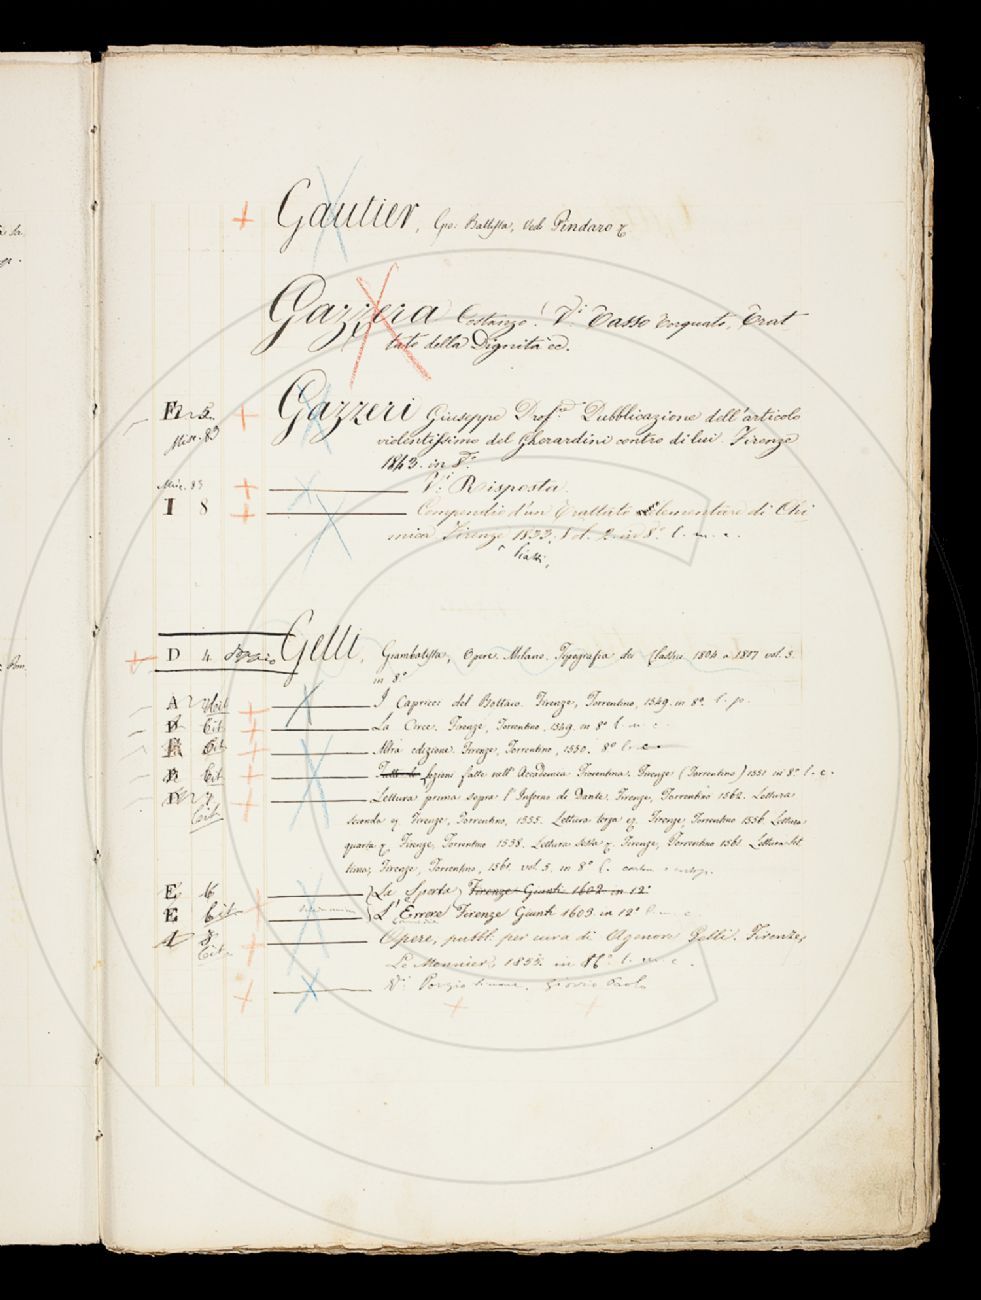 Gautier, Gio: Battista, Vedi Pindaro &
Gazzera Costanzo. V.i Tasso Torquato, Trat
tato della Dignità ec.
F 5 Gazzeri Giuseppe Prof. Pubblicazione dell'articolo
Misc. 83 violentissimo del Gherardini contro di lui. Firenze
1843. in 8.o
Misc. 83 V.i Risposta.
I 8 Compendio d'un Trattato Elementare di Chi
mica Firenze 1833. Vol. 2. in 8.o l. m. c.
Piatti,
D 4 Gelli, Giambatista, Opere. Milano. Tipografia dei Classici 1804 a 1807 vol. 3.
in 8.o
A Cit I Capricci del Bottaio. Firenze, Torrentino, 1549. in 8.o l. p.
Cit La Circe. Firenze, Torrentino, 1549. in 8.o l. m. c.
Cit Altra edizione. Firenze, Torrentino, 1550. 8.o l. c.
Cit Tutte le Lezioni fatte nell'Accademia Fiorentina. Firenze (Torrentino) 1551 in 8.o l. c.
7 Lettura prima sopra l'Inferno di Dante. Firenze, Torrentino 1562. Lettura
Cit seconda Firenze, Torrentino, 1555. Lettura terza Firenze, Torrentino 1556. Lettura
quarta Firenze, Torrentino 1558. Lettura sesta Firenze, Torrentino 1561. Lettura set
tima; Firenze, Torrentino, 1561. vol. 5. in 8.o l.
E 6 La Sporta Firenze Giunti 1602. in 12.o
E Cit L'Errore Firenze Giunti 1603. in 12.o l. m. c.
I 8 Opere, pubbl. per cura di Agenore Gelli. Firenze,
Cit. Le Monnier, 1855. in 16.o l. m. c.
V.i Porzio Simone. Giovio Paolo